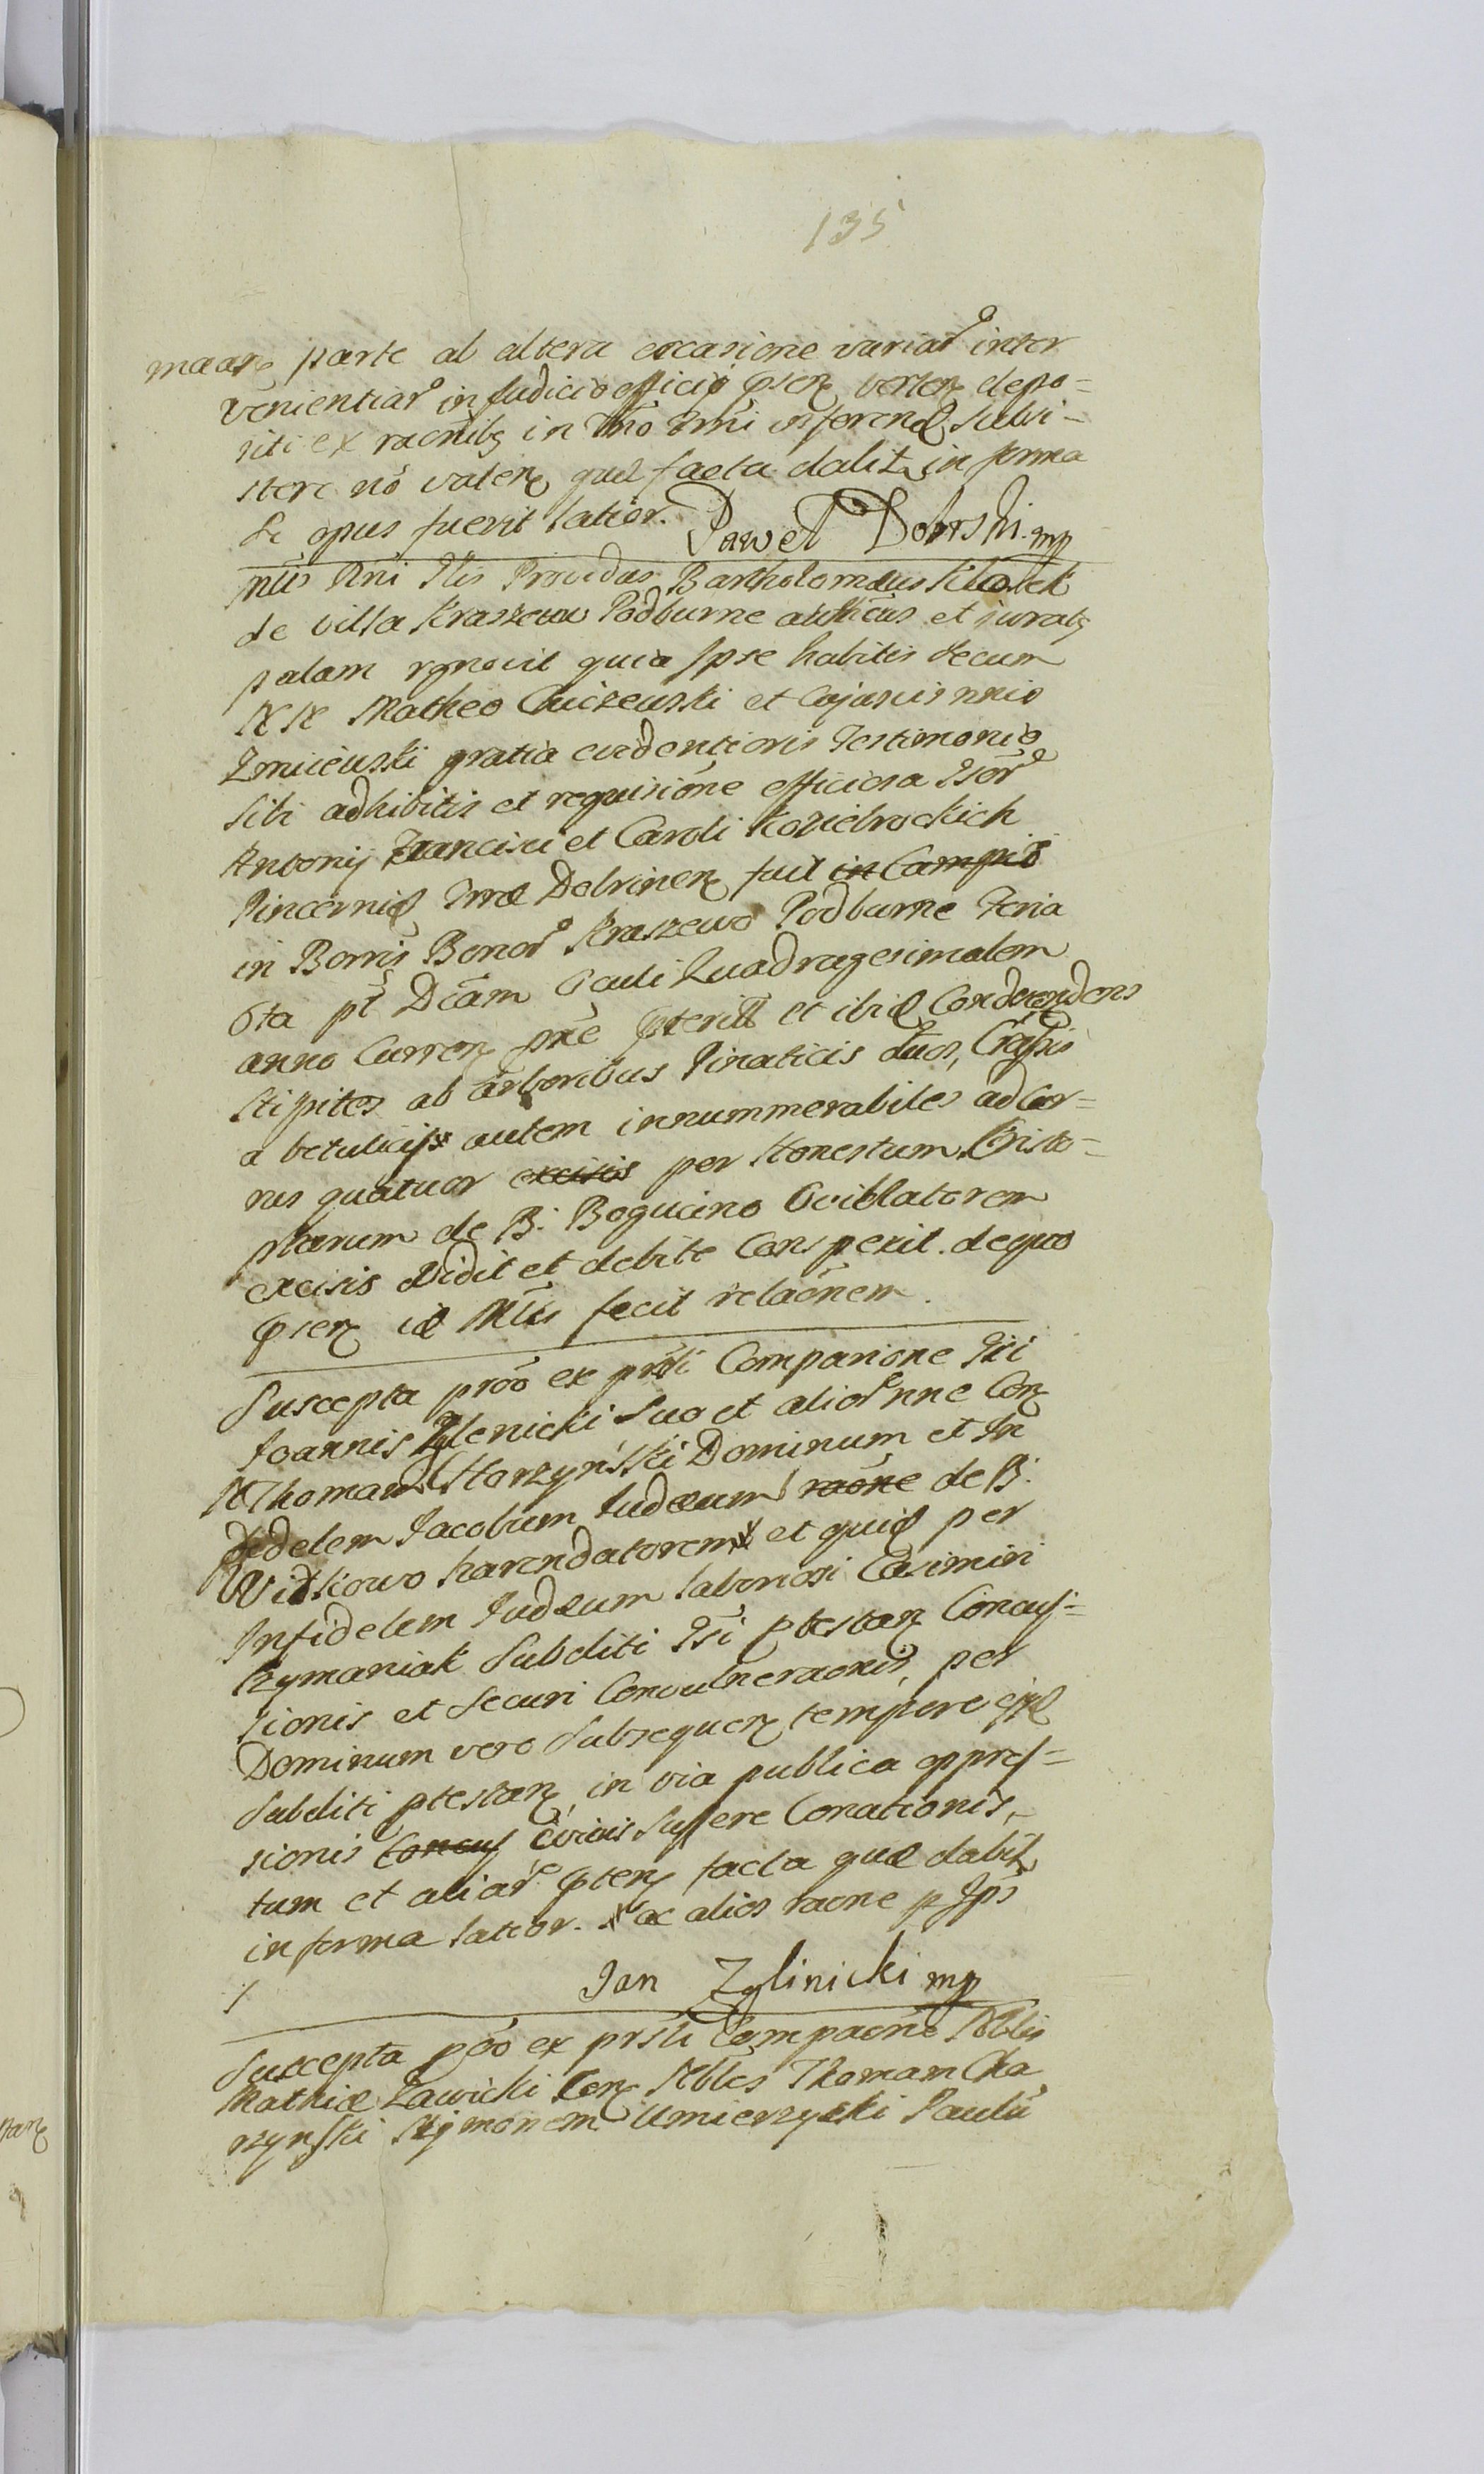 135
parte ab altera occasione variar inter
venientiar in Judicio officio verten depo=
siti ex raõnibs in Tño Trmi inferend subsi-
stere nõ valen quæ facta dabitr in forma
si opus fuerit latior. Paweł Dobrski mp
Mlis Rni Glis Providus Bartholomæus Kłosek
de villa Kraszewo Podburne authẽus et juratq
palam rgnovit quia Ipse habitis secum
NN Matheo Chiczewski et
Zmiiewski gratia evidentioris Testimonio
sibi adhibitis et requisiõne officiosa
Antonij Francisci et Caroli Koziebrockich
Pincernid Trræ Dobrinen fuit in Campis
in Borris Bonor Kraszewo Podburne Feria
6ta pt Dcãm Oculi Quadragesimalem
anno Curren prẽ pterit et ibid
stipites ab arboribus Pinaticis duos,
a betulicis autem innummerabiles ad Cur=
rus quatuor excisis per Honestum Cristo=
pharum de B: Bogucino
excisis vidit et debite Conspexit. de quo
psen id Mlis fecit relaõnem.
Suscepta prõo ex prsti Comparione Gsi
Joannis Zglenicki suo et alior nne Con
N Thomam Starzyński Dominum et In
fidelem Jacobum Judæum raõne de B:
Witkowo harendatorem et quid per
Infidelem Judæum laboriosi Casimiri
Rzymaniak subditi Gsi ptestan Concus=
sionis et securi Convulneraõnis, per
Dominum vero subsequen tempore ejsd
subditi ptestan in via publica oppres=
sionis Concus civius suffere Conationis,
tum et aliar pten facta quæ dabitr
in forma latior. ac alios raone p Ips
./.
Jan Zglinicki mp
Suscepta prõo ex prsti Compaõne Nblis
Mathiæ Zawicki Con Nbles Thomam Cha
rzynski Szymonem Umierzycki Paulũ